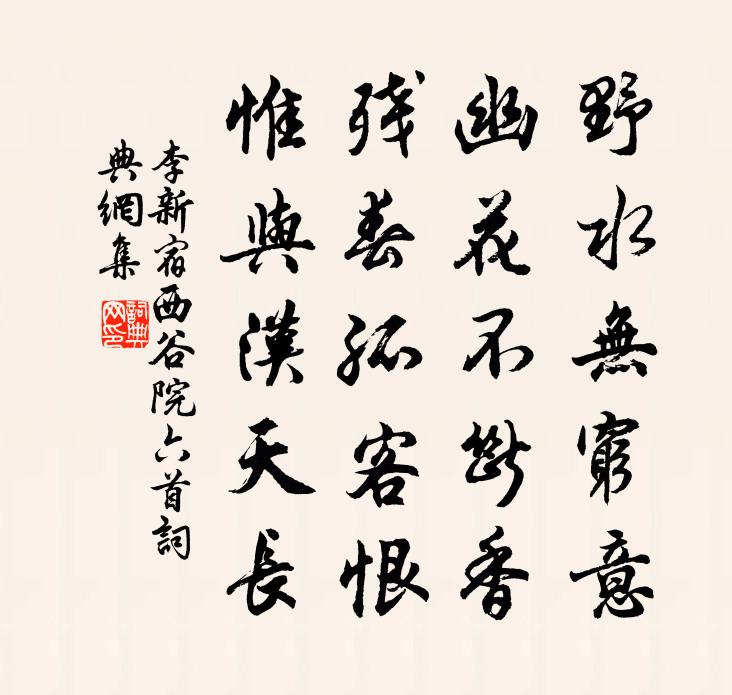 野水無窮意
幽花不斷香
殘春孤客恨
惟與漢天長
李新宿西谷院六首詞
典網集
詞典
网印